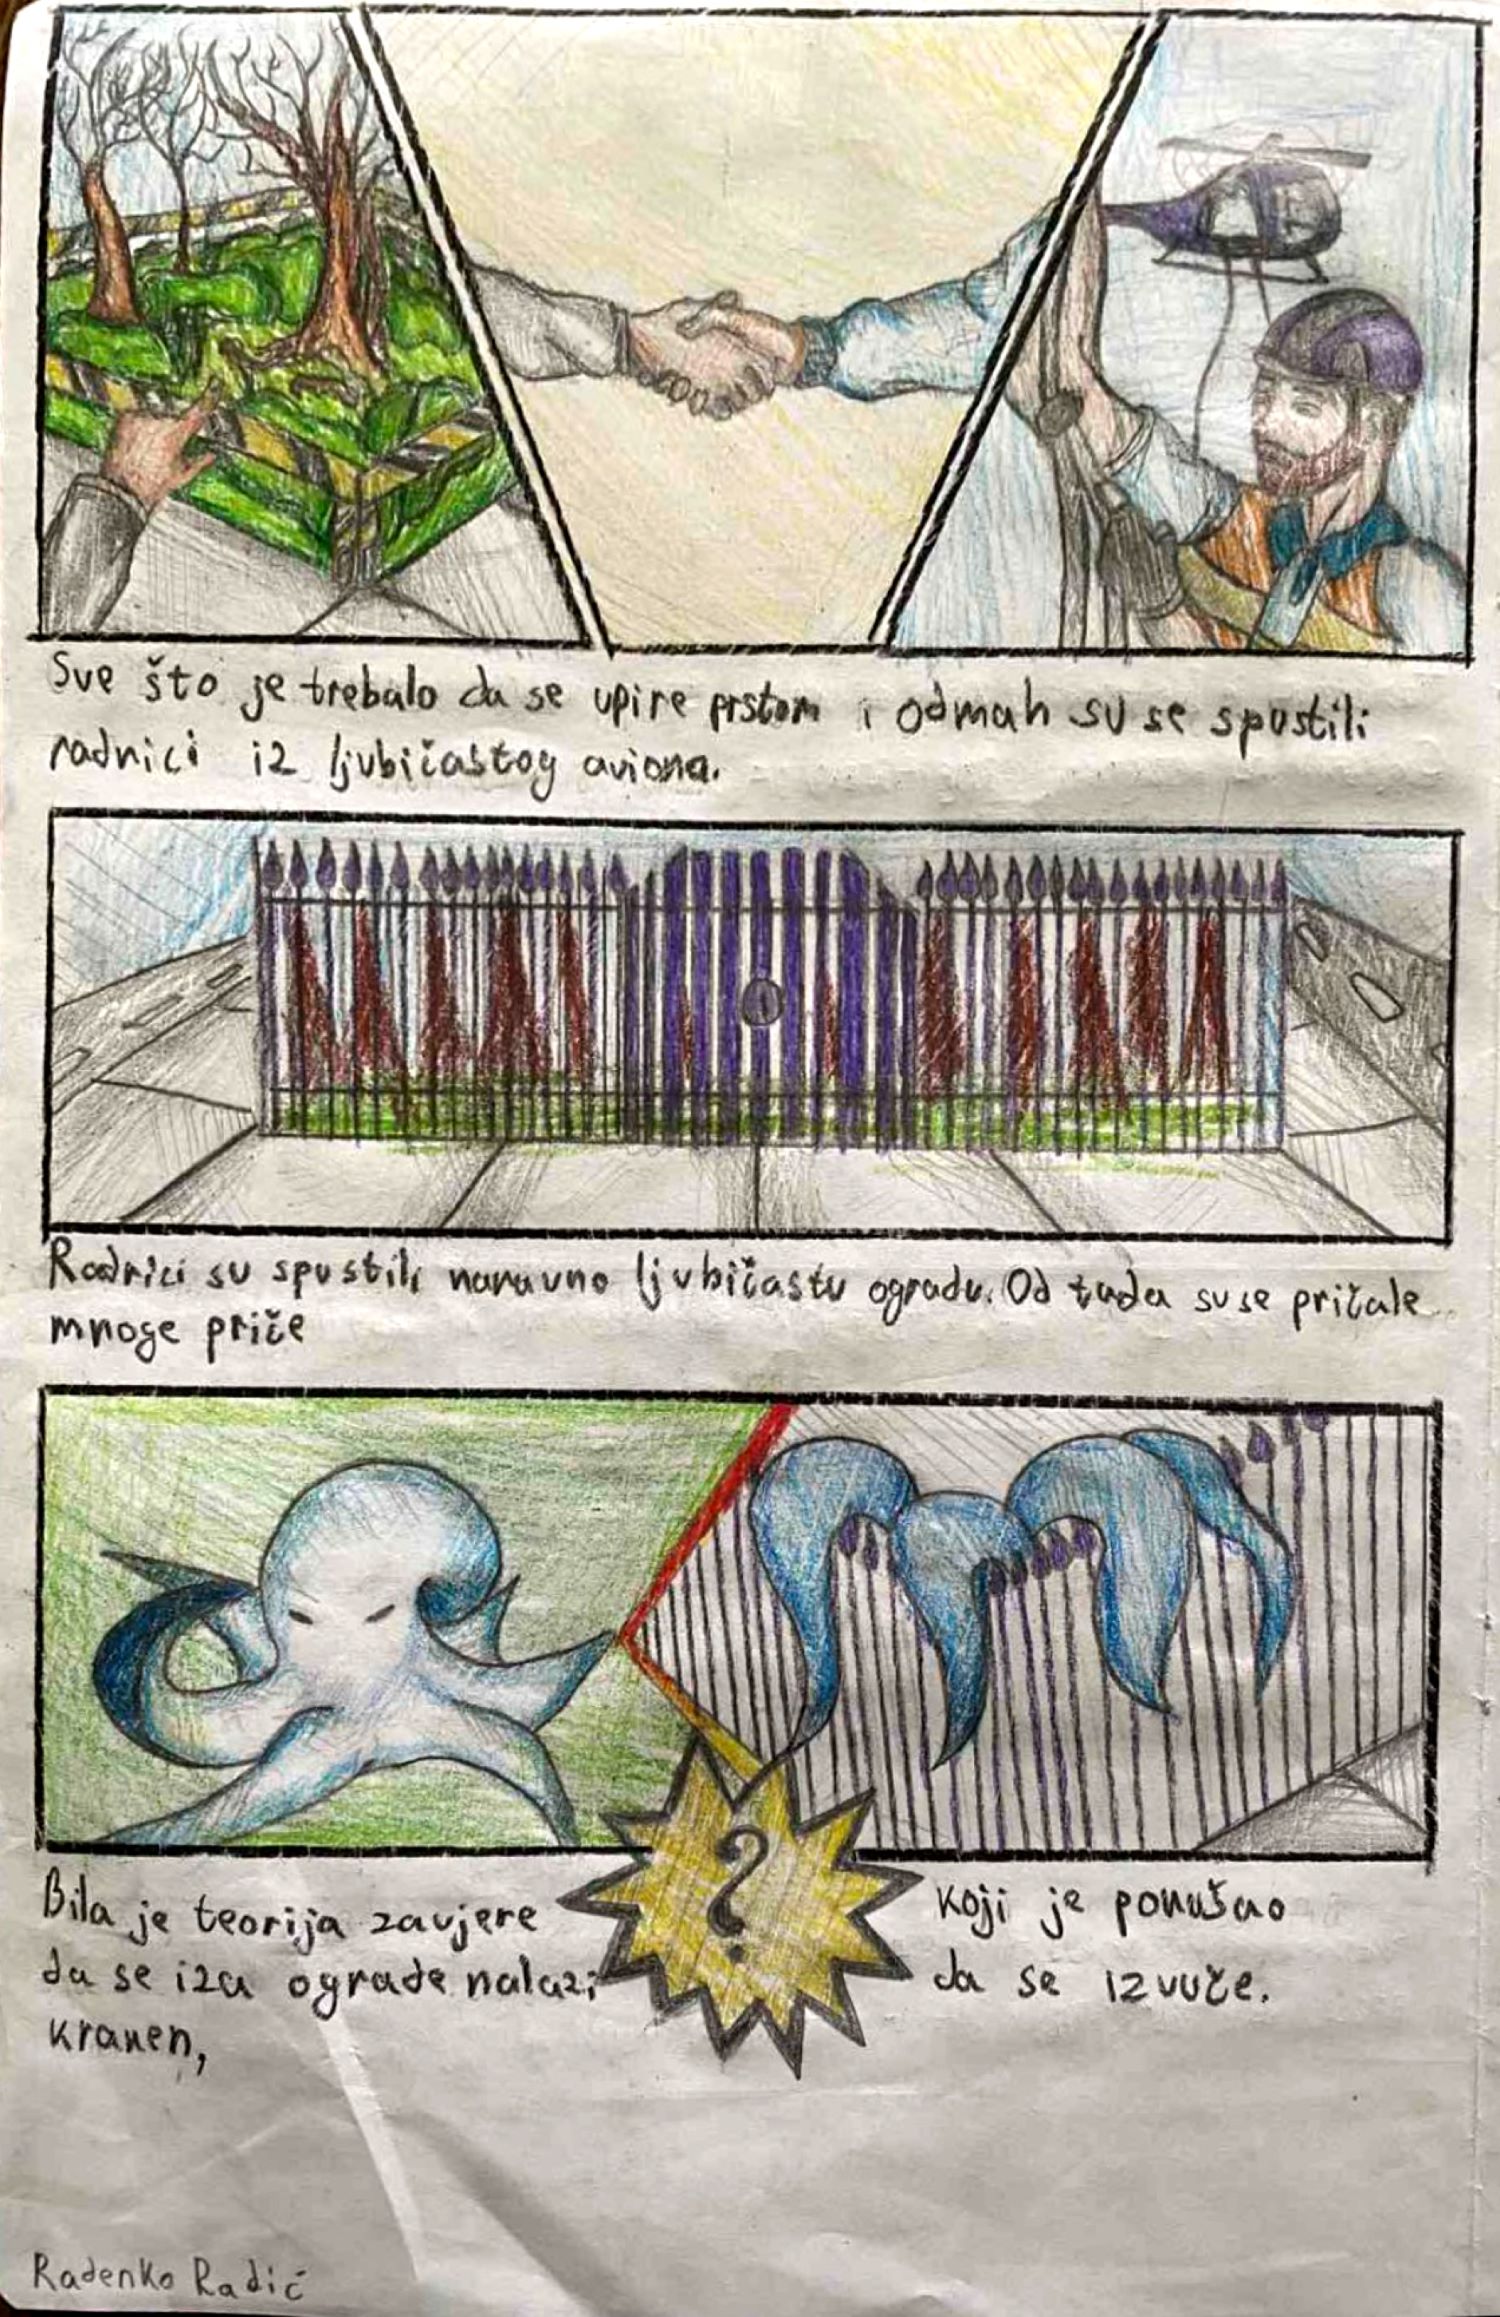 Sve što je trebalo da se upire prstom i odmah su se spustili
radnici iz ljubičastog aviona.
Radnici su spustili naravno ljubičastu ogradu. Od tada su se pričale
mnoge priče
?
Bila je teorija zavjere
da se iza ograde nalazi
kraken,
koji je ponušao
da se izvuče.
Radenko Radić